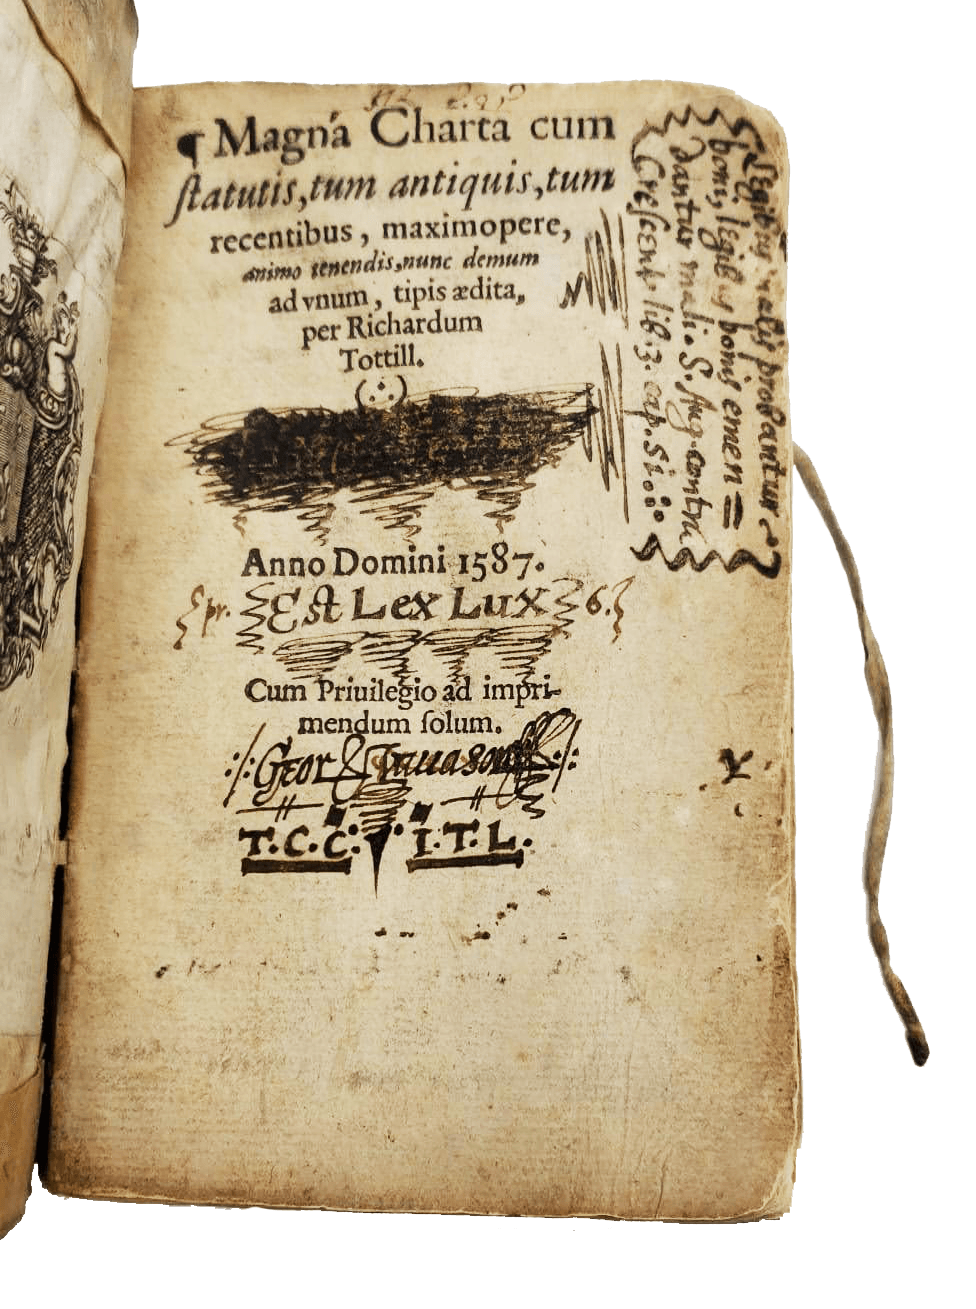 ¶ Magna Charta cum
ſtatutis, tum antiquis, tum
recentibus, maximopere,
animo tenendis, nunc demum
ad vnum, tipis ædita,
per Richardum
Tottill.
Anno Domini 1587.
pr. Eſt Lex Lux 6.
Cum Priuilegio ad impri-
mendum ſolum.
Geor
T.C.C. I.T.L.
Legibus malis probantur
boni, legibus bonis emen=
dantur mali. S. Aug. contra
Creſcent. lib. 3. cap. 51.